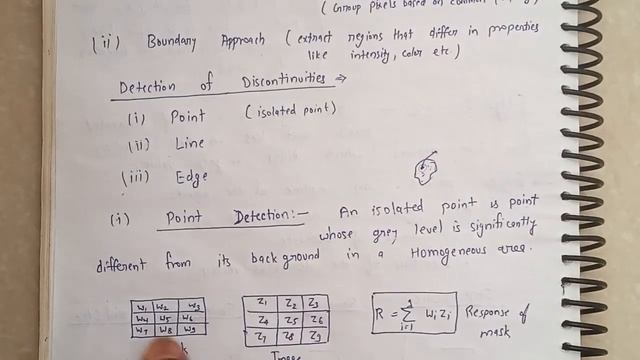 (Group pixels based on common
(ii) Boundary Approach (extract regions that differ in properties
like intensity, color etc.)
Detection of Discontinuities ⇒
(i) Point (isolated point)
(ii) Line
(iii) Edge
(i) Point Detection:— An isolated point is point
whose grey level is significantly
different from its background in a Homogeneous area.
W1 W2 W3
W4 W5 W6
W7 W8 W9
Z1 Z2 Z3
Z4 Z5 Z6
Z7 Z8 Z9
Image
R = Σ i=1 9 WiZi Response of
mask